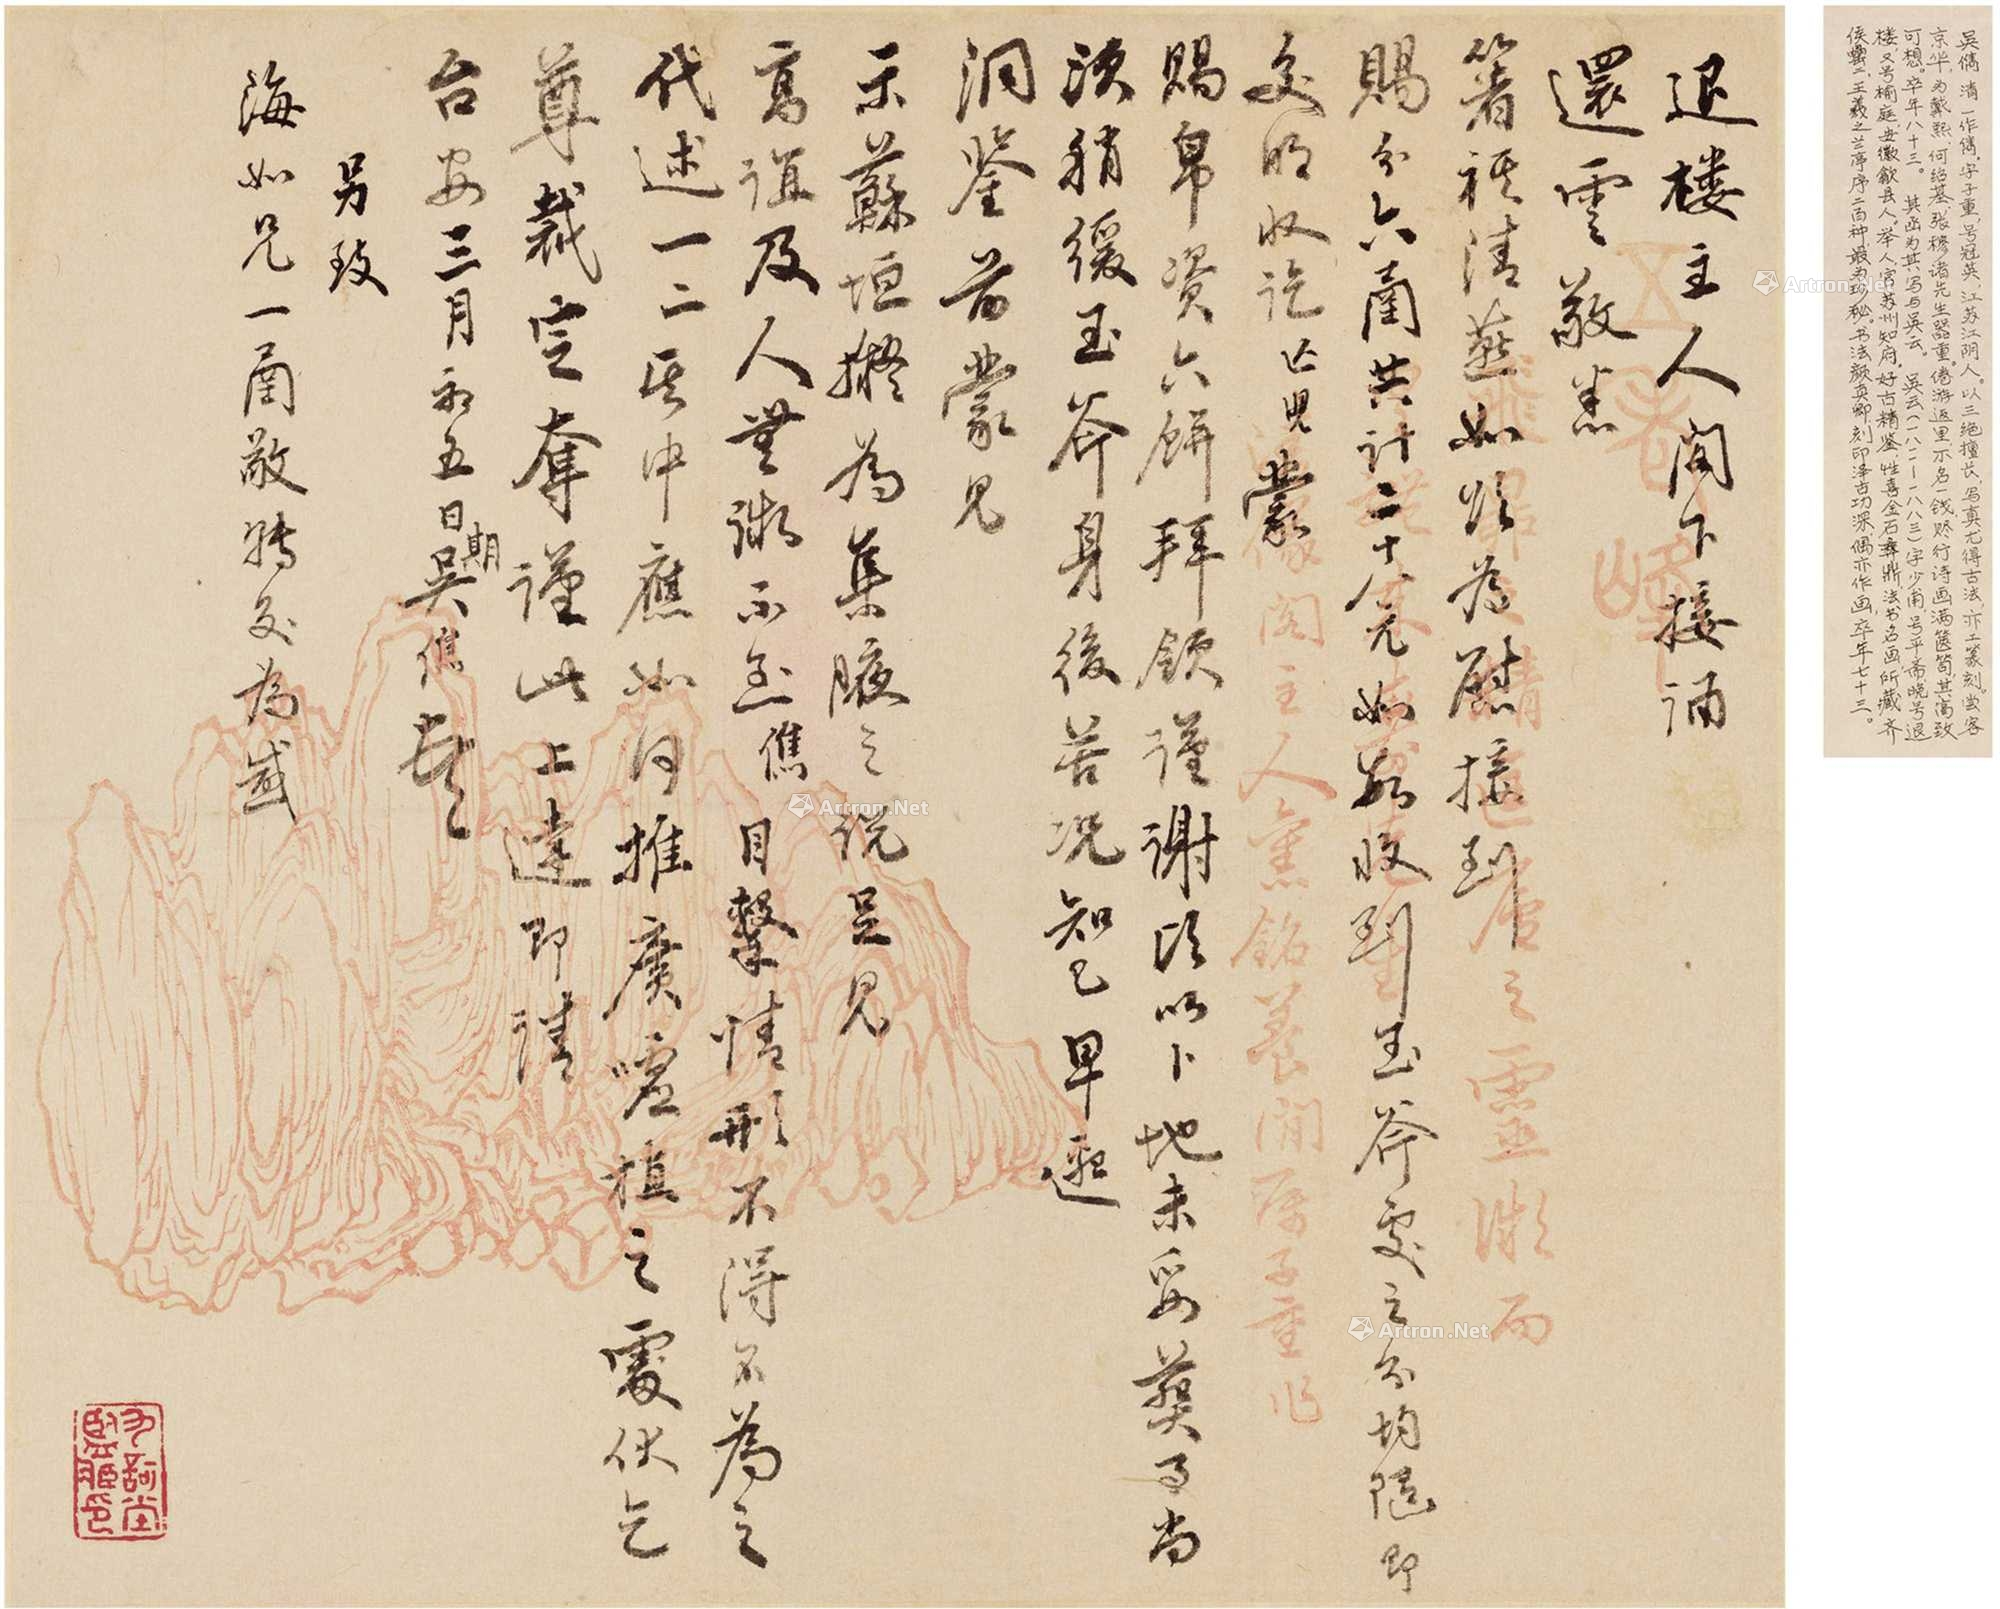 退楼主人阁下接诵
還雲敬悉
箸祺清燕如頌為慰接到
賜分六函共計二十八元如数收到玉斧處之分均随即
交明收訖亡児蒙
賜帛資六餅拜領謹謝頃以卜地未妥葬事尚
须稍緩玉斧身後苦况知已早邀
洞鑒前蒙見
示蘇垣擬為集腋之说足見
高誼及人無微不至儁目擊情形不得不為之
代述一二其中應如何推廣嘘植之處伏乞
尊裁定奪謹此上達即請
台安三月初五日吴儁
期
另致
海如兄一函敬转交為感
五老峰
主人
養閒
子重作
吴儁清一作俊字子重号冠英江苏江阴人以三绝擅长写真尤得古法亦工篆刻尝客
京华为戴熙何绍基张穆诸先生器重倦游返里不名一钱赆行诗画满箧笥其高致
可想卒年八十三。其函为其写与吴云。吴云(一八一一—一八八三)字少甫号平斋晚号退
楼又号榆庭安徽歙县人举人官苏州知府好古精鉴性喜金石彝鼎法书名画所藏齐
侯罍二王羲之兰亭序二百种最为珍秘书法颜真卿刻印泽古功深偶亦作画卒年七十三。
Artron.Net
Artron.Net
Artron.Net
Artron.Net